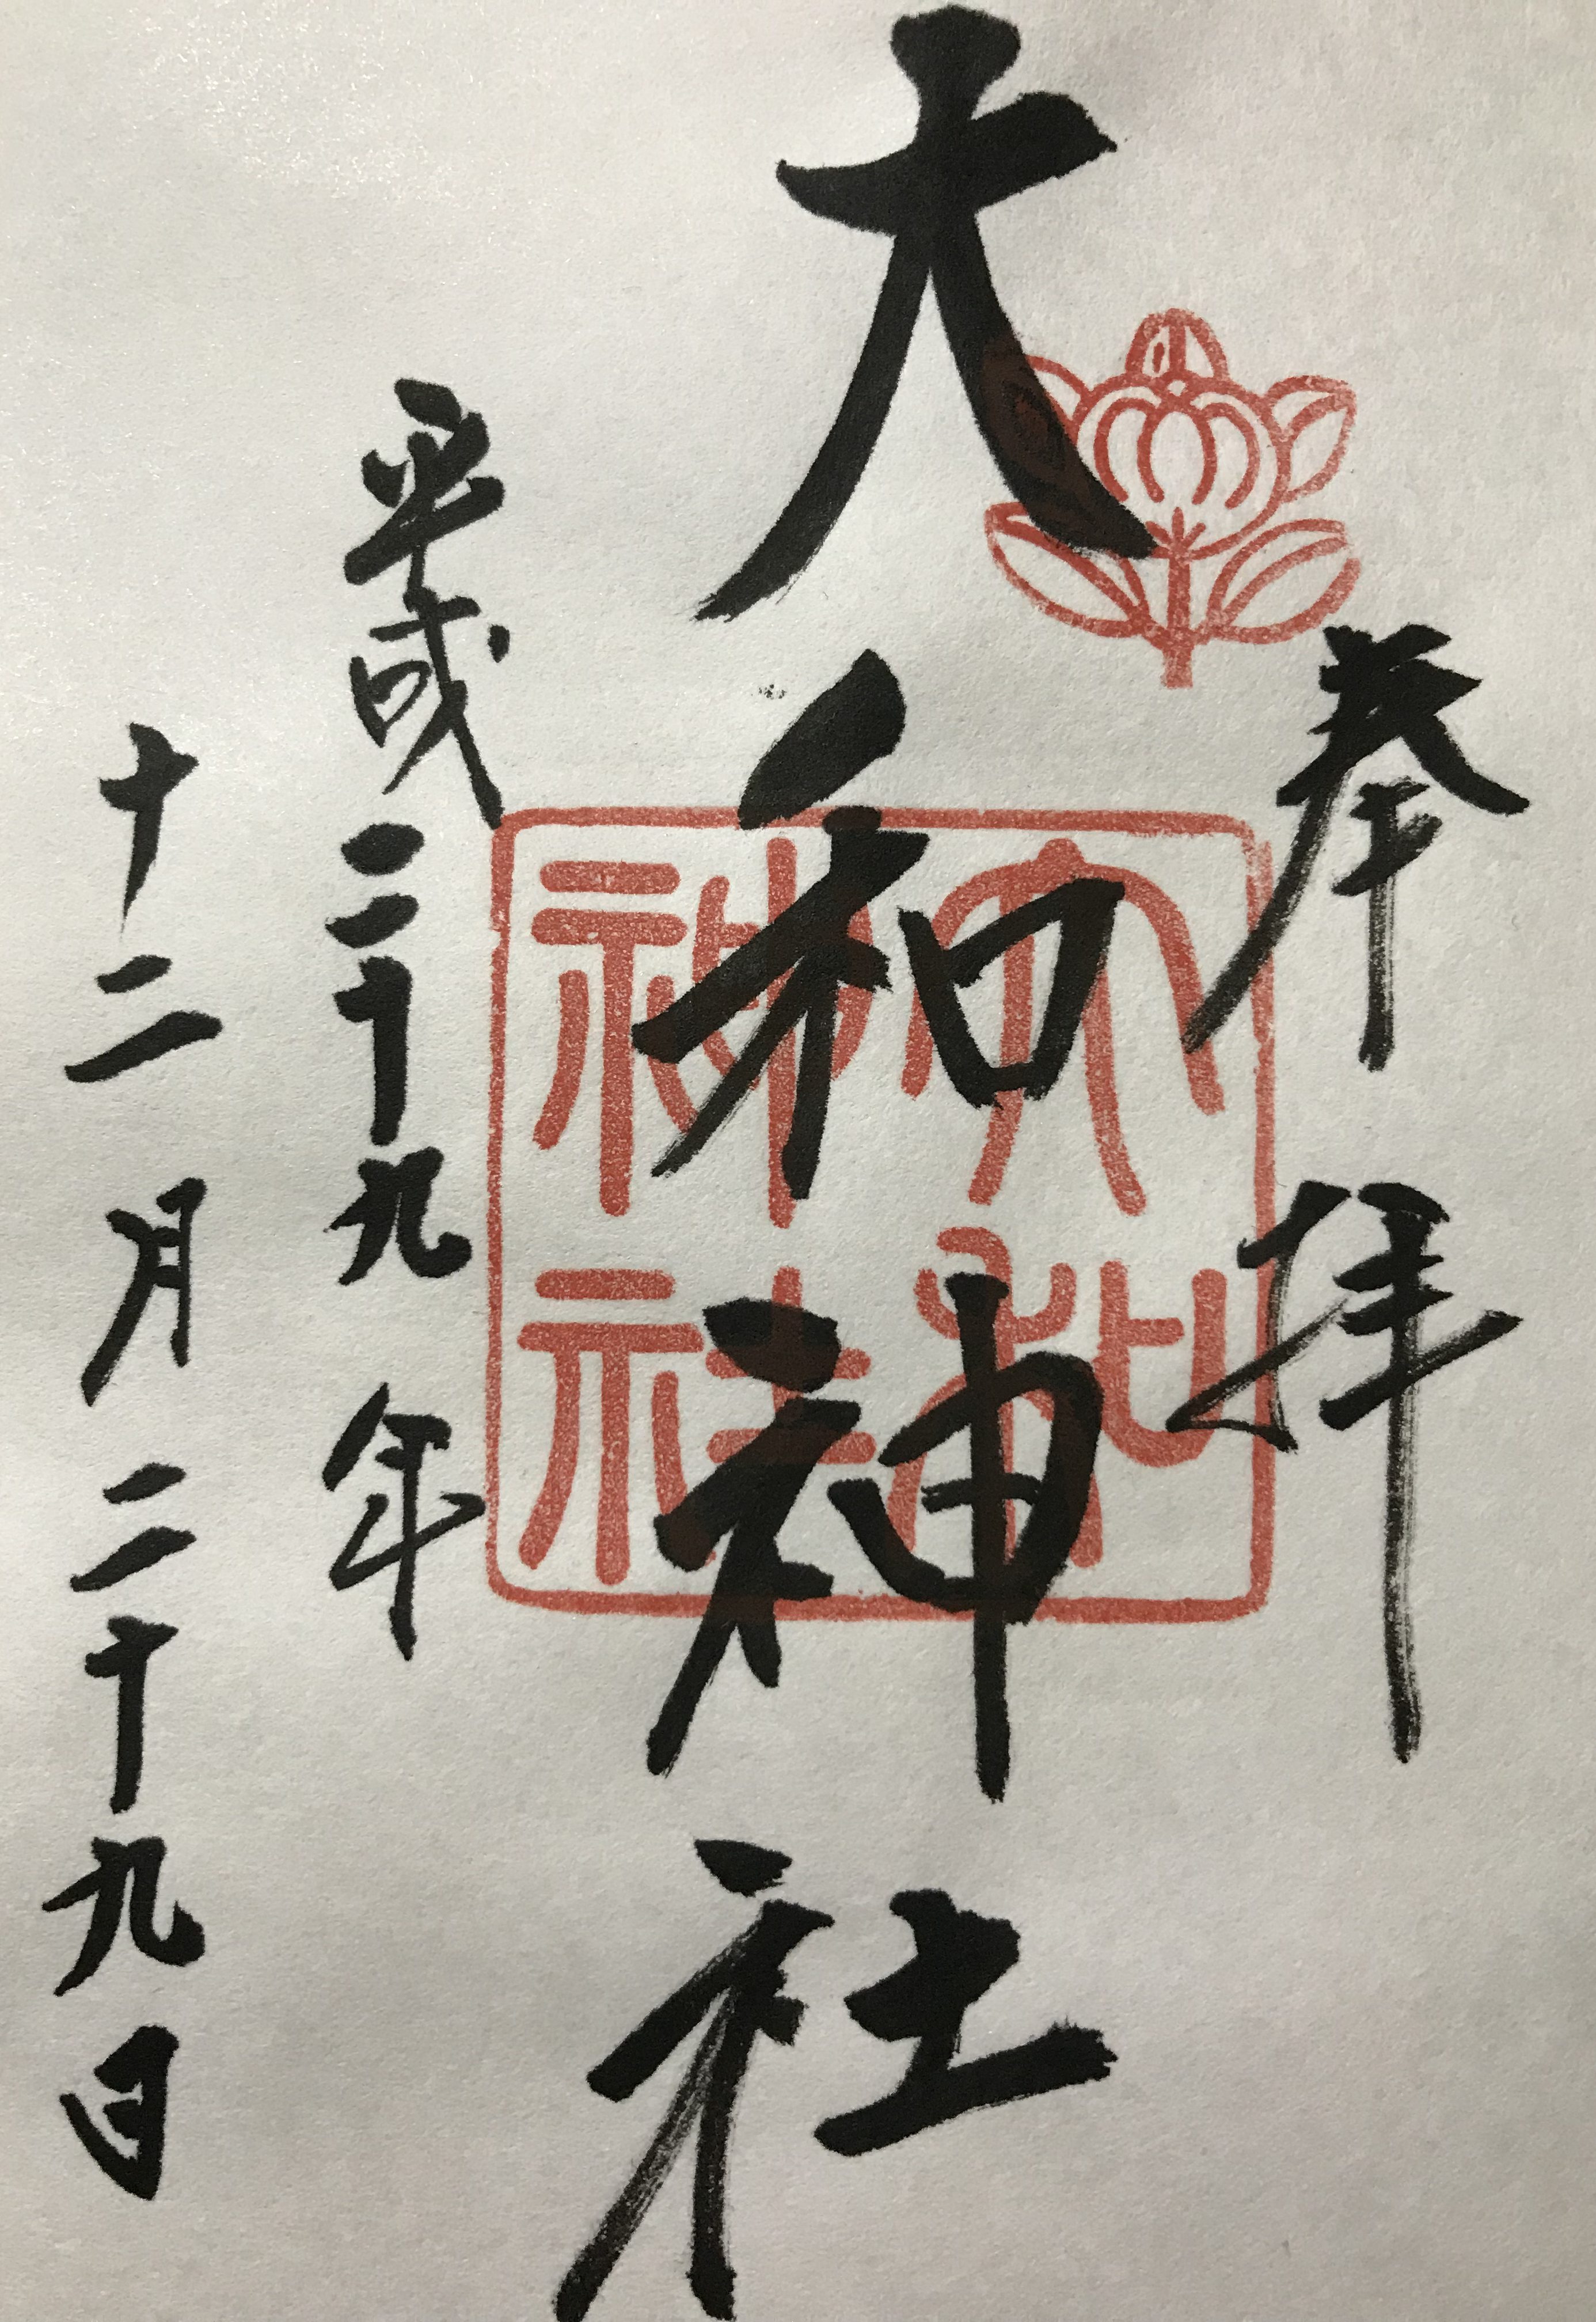 奉拝
大和神社
大和
神社
平成二十九年
十二月二十九日